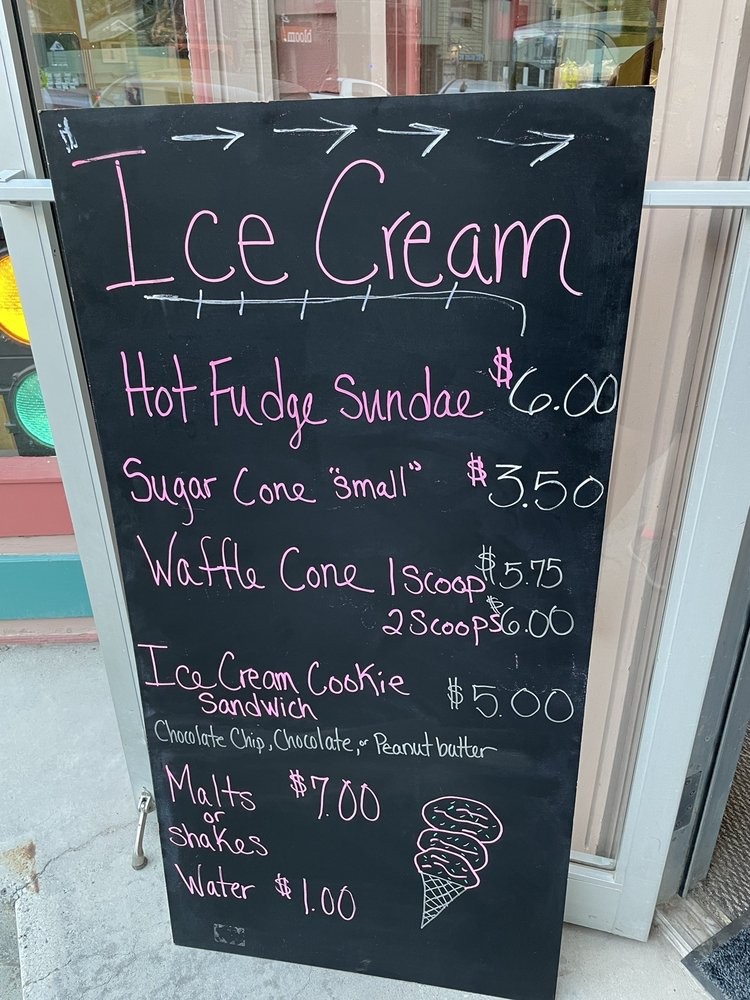 bloom.
Ice Cream
Hot Fudge Sundae $6.00
Sugar Cone "small" $3.50
Waffle Cone 1 Scoop $5.75
2 Scoops $6.00
Ice Cream Cookie $5.00
Sandwich
Chocolate Chip, Chocolate, or Peanut butter
Malts $7.00
or
shakes
Water $1.00